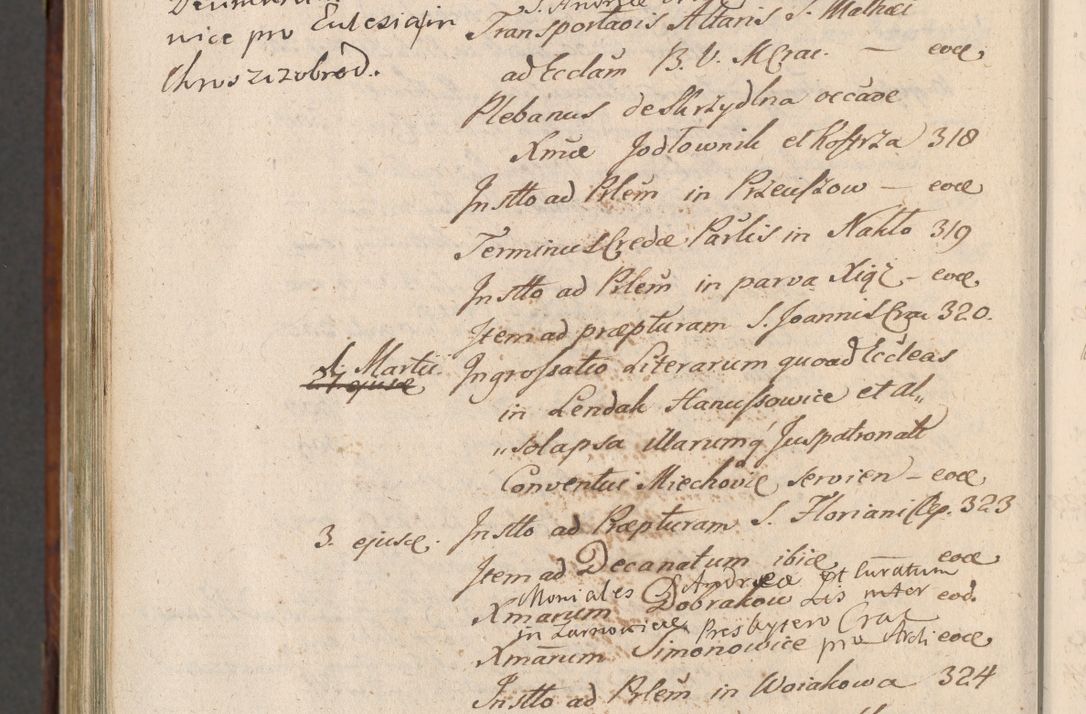 nice pro Ecclesia in
Chroszczobrod.
Transportaõis Altaris S. Mathæi
ad Ecclam B. V. M Crac. — eođ.
Plebanus de Skrzydlna occãoe
Xmæ Jodłownik et Kostrza 318
Instto ad Prlem̃ in Przewszow — eođ
Terminus Credæ Parlis in Nakło 319
Instto ad Prlem̃ in parva Xiąz — eođ
Item ad præpturam S. Joannis Crac 320.
1. Martii Ingrossatio Literarum quoad Eccleas
27. ejusđ
in Lendak Hanussowice et al„
„solapsa illarumq́ Juspatronatt
Conventui Miechoviẽ servien — eođ
Instto ad Præpturam S. Floriani Clep. 323
3. ejusđ. Item ad Decanatum ibiđ eođ
Moniales S. Andreæ et Curatum
Xmarum Dobrakow Lis inter eođ.
in Zarnowiec Presbytero Crac
Xmãrum Simonowice pro Archi eođ
Instto ad Prlem̃ in Woiakowa 324